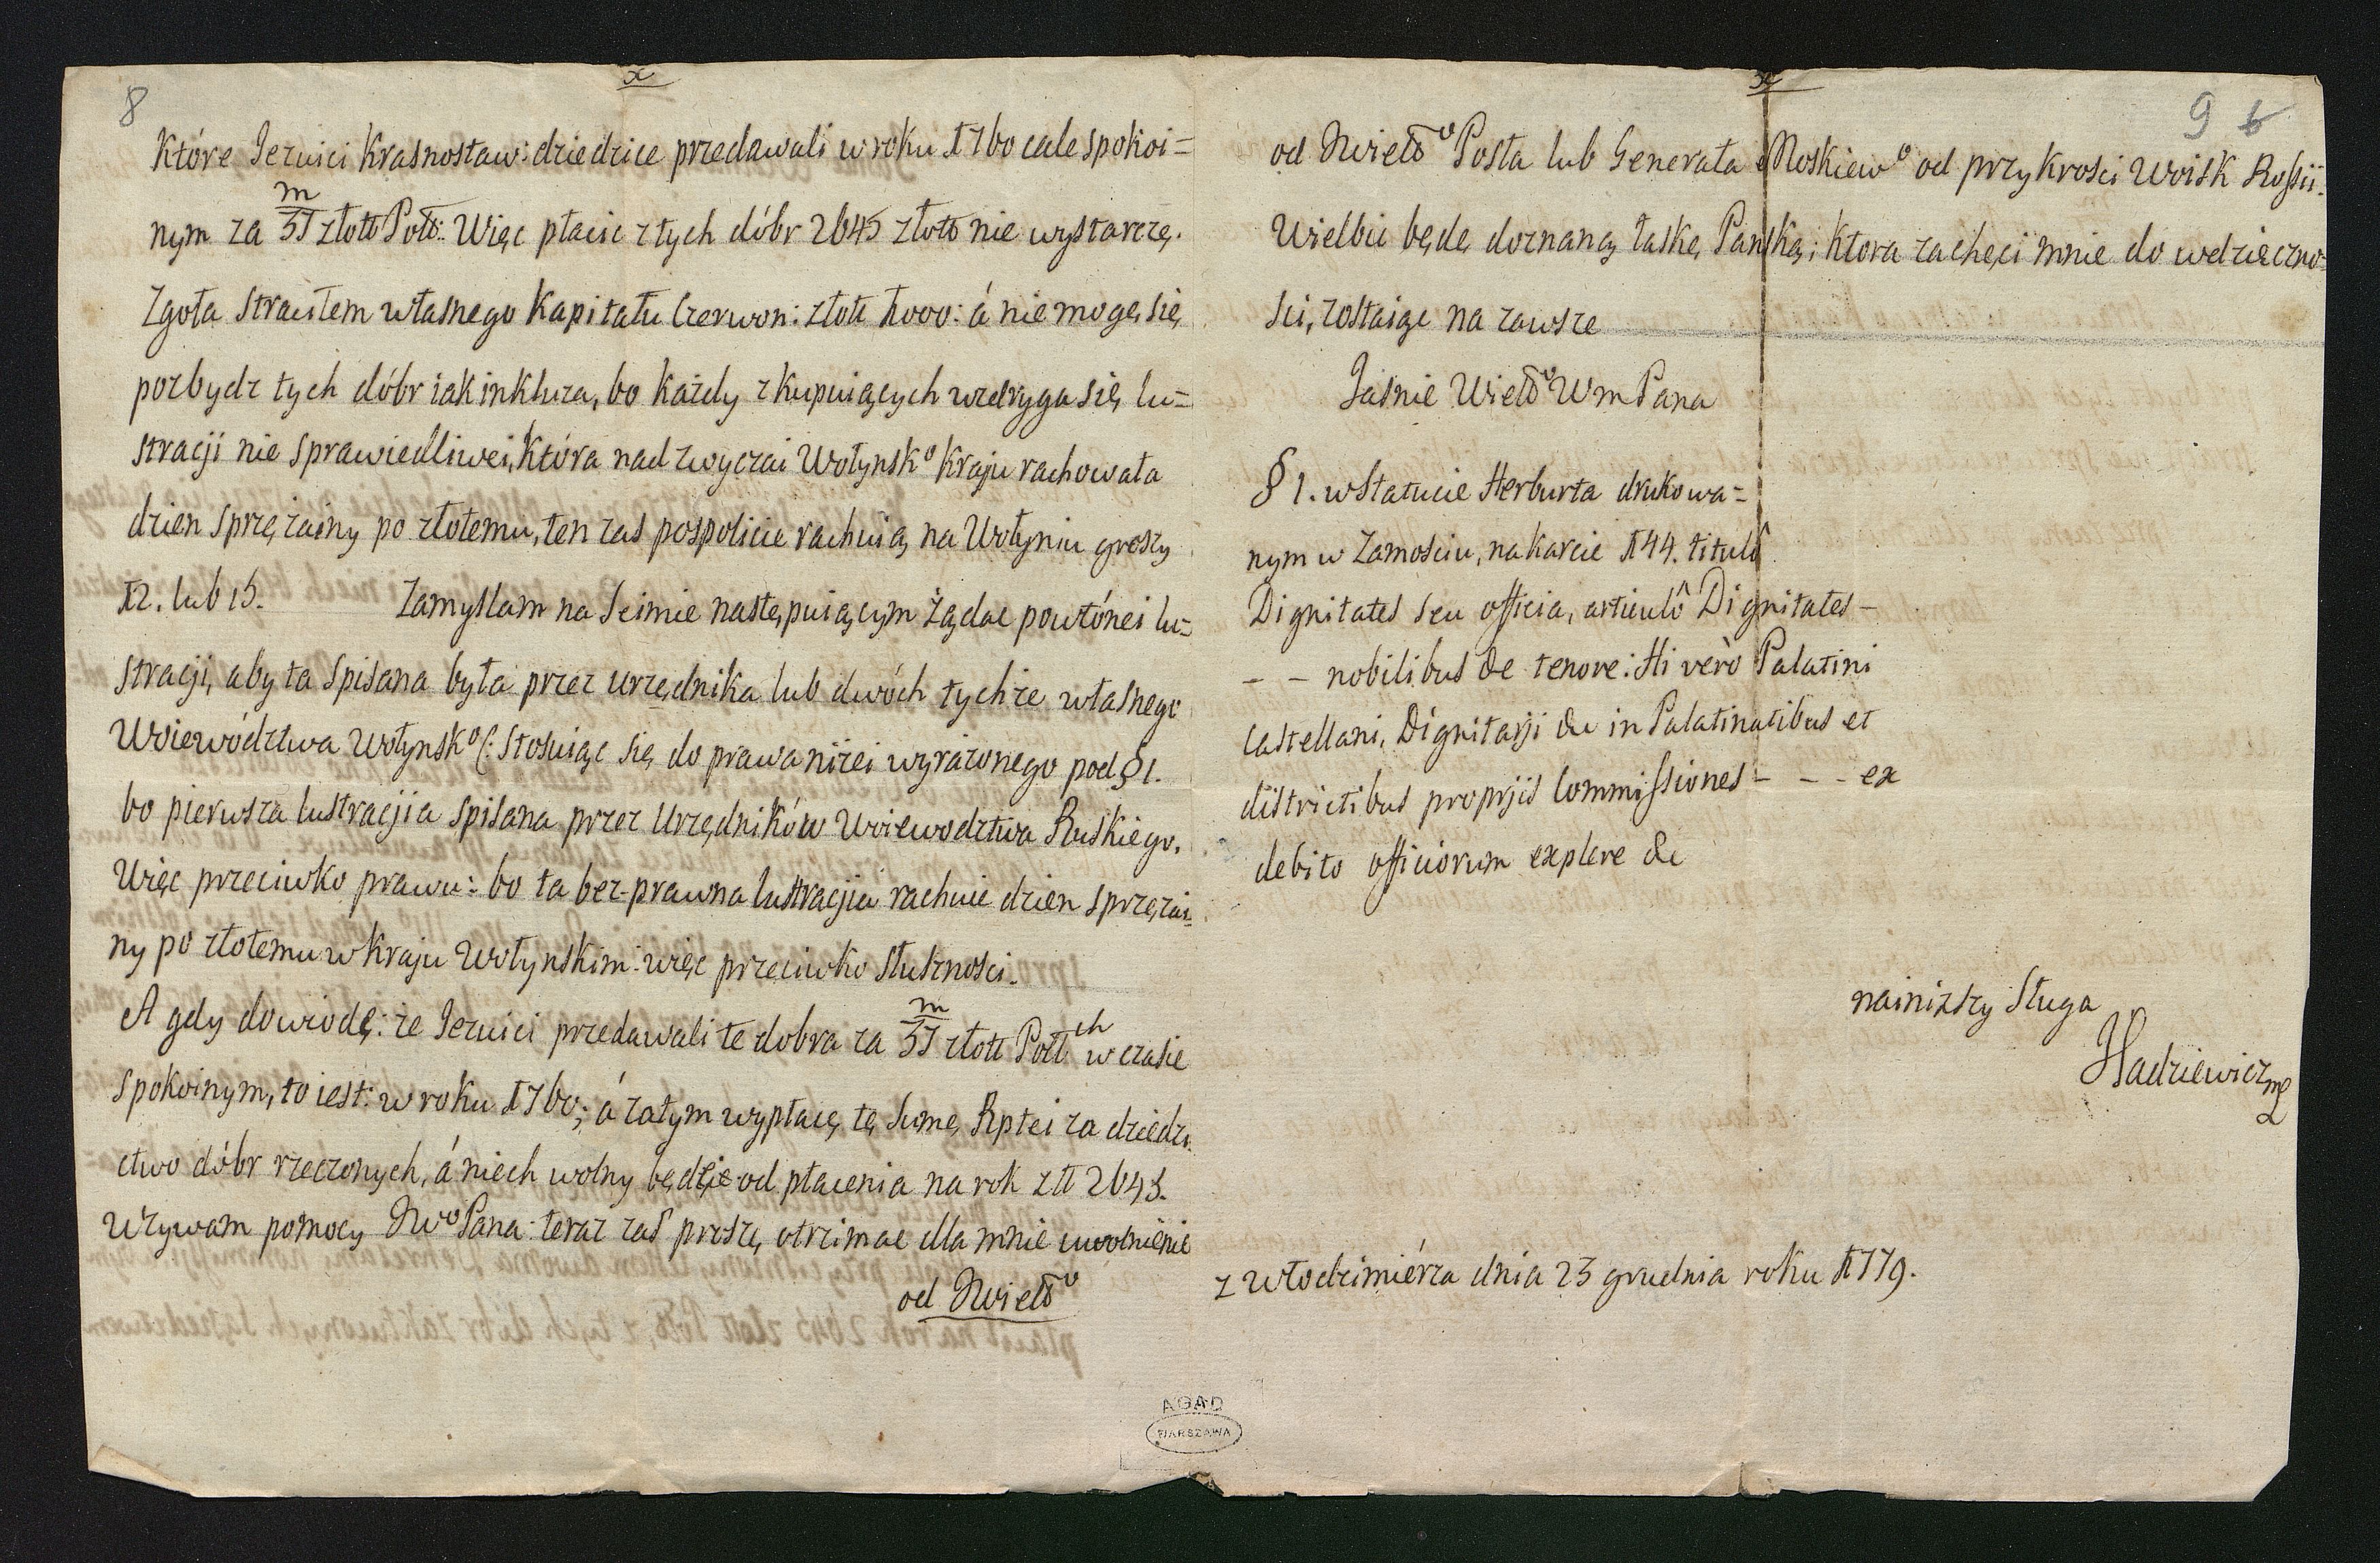 8
x
Które Jezuici Krasnostaw: dziedzice przedawali w roku 1760 cale spokoi=
nym za 3j m złott Poll: Więc płacic z tych dóbr 2645 złott nie wystarczę.
Zgoła straciłem własnego kapitału Czerwon: złott 1000: á nie mogę się
pozbydz tych dóbr iak inkluza, bo każdy z kupuiących wzdryga się lu=
stracji nie sprawiedliwei, Która nad zwyczai Wołynsko kraju rachowała
dzien sprzężainy po złotemu, ten zas pospolicie rachuią na Wołyniu groszy
12. lub 15. Zamyslam na Seimie następuiącym żądac powtónei lu=
stracji, aby ta spisana była przez urzędnika lub dwóch tychże własnego
Woiewództwa Wołynsko (: stosuiąc się do prawa niżei wyrażonego pod § 1.
bo pierwsza lustracjia spisana przez Urzędników Woiewodztwa Ruskiego.
Więc przeciwko prawu: bo ta bez-prawna lustracjia rachuie dzien sprzężai=
ny po złotemu w Kraju Wołynskim: więc przeciwko słusznosci.
A gdy dowiodę: że Jezuici przedawali te dobra za 3j m złott Pollch w czasie
spokoinym, to iest: w roku 1760; á zatym wypłacę tę sumę Rptei za dziedzi
ctwo dóbr rzeczonych, á niech wolny będę od płacenia na rok złł 2645.
Wzywam pomocy JWo Pana: teraz zaś proszę otrzimac dla mnie uwolnienie
od JWiello
x
9 6
od JWiello Posła lub Generała Moskiewo od przykrosci Woisk Rossii:
Wielbic będę doznaną łaskę Panską; ktora zachęci mnie do wdzięczno
sci, zostaiąc na zawsze
Jasnie Wiello WmPana
§ 1. w Statucie Herburta drukowa=
nym w Zamosciu, na karcie 144. titulô
Dignitates seu officia, articulô Dignitates –
– – nobilibus &c tenore: Hi verò Palatini
Castellani, Dignitarji &c in Palatinatibus et
districtibus proprjis Commissiones – – – ex
debito officiorum explere &c
nainizszy Sługa
Hadziewicz mp
z Włodzimiérza dnia 23 grudnia roku 1779.
AGAD
WARSZAWA